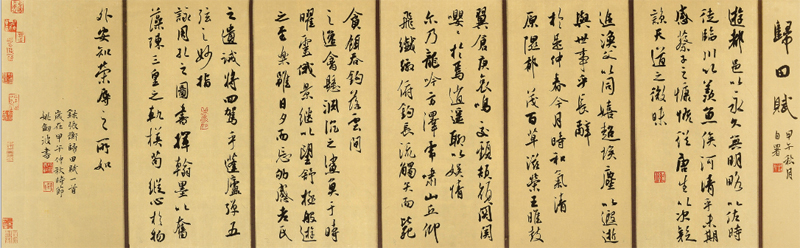 歸田賦
甲子秋月
自署
遊都邑以永久無明略以佐時
徒臨川以羨魚俟河清乎未期
感蔡子之慷慨從唐生以決疑
諒天道之微昧
追漁父以同嬉超埃塵以遐逝
與世事乎長辭
於是仲春令月時和氣清
原隰鬱茂百草滋榮王雎鼓
翼倉庚哀鳴交頸頡頏關關
嚶嚶於焉逍遙聊以娛情
尔乃龍吟方澤虎嘯山丘仰
飛纖繳俯釣長流觸矢而斃
貪餌吞鉤落雲間
之逸禽懸淵沉之魦鰡于時
曜靈俄景繼以望舒極般遊
之至樂雖日夕而忘劬感老氏
之遺誡將回駕乎蓬廬彈五
弦之妙指
詠周孔之圖書揮翰墨以奮
藻陳三皇之軌模苟縱心於物
外安知榮辱之所如
錄張衡歸田賦一首
歲在甲子仲秋時節
姚劍波書